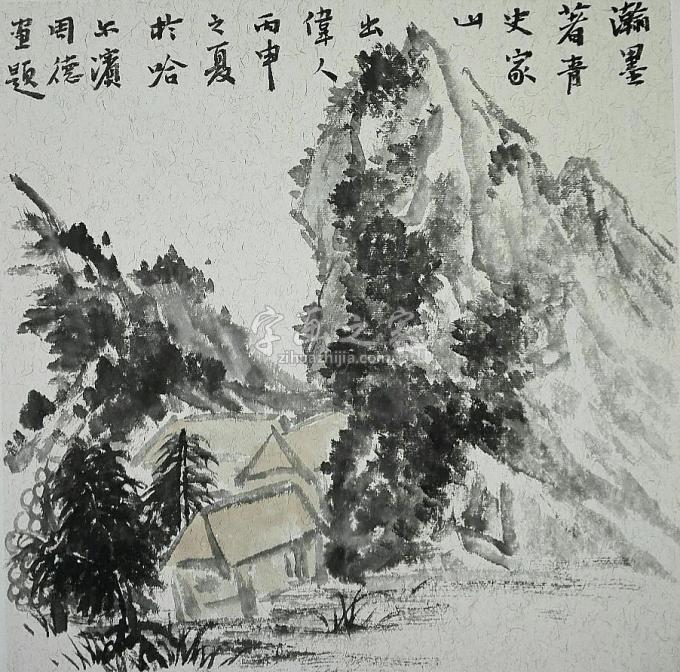 瀚墨
著青
史家
山
出
偉人
丙申
之夏
於哈
尔濱
周德
畫題
字画之家
zihuazhijia.com